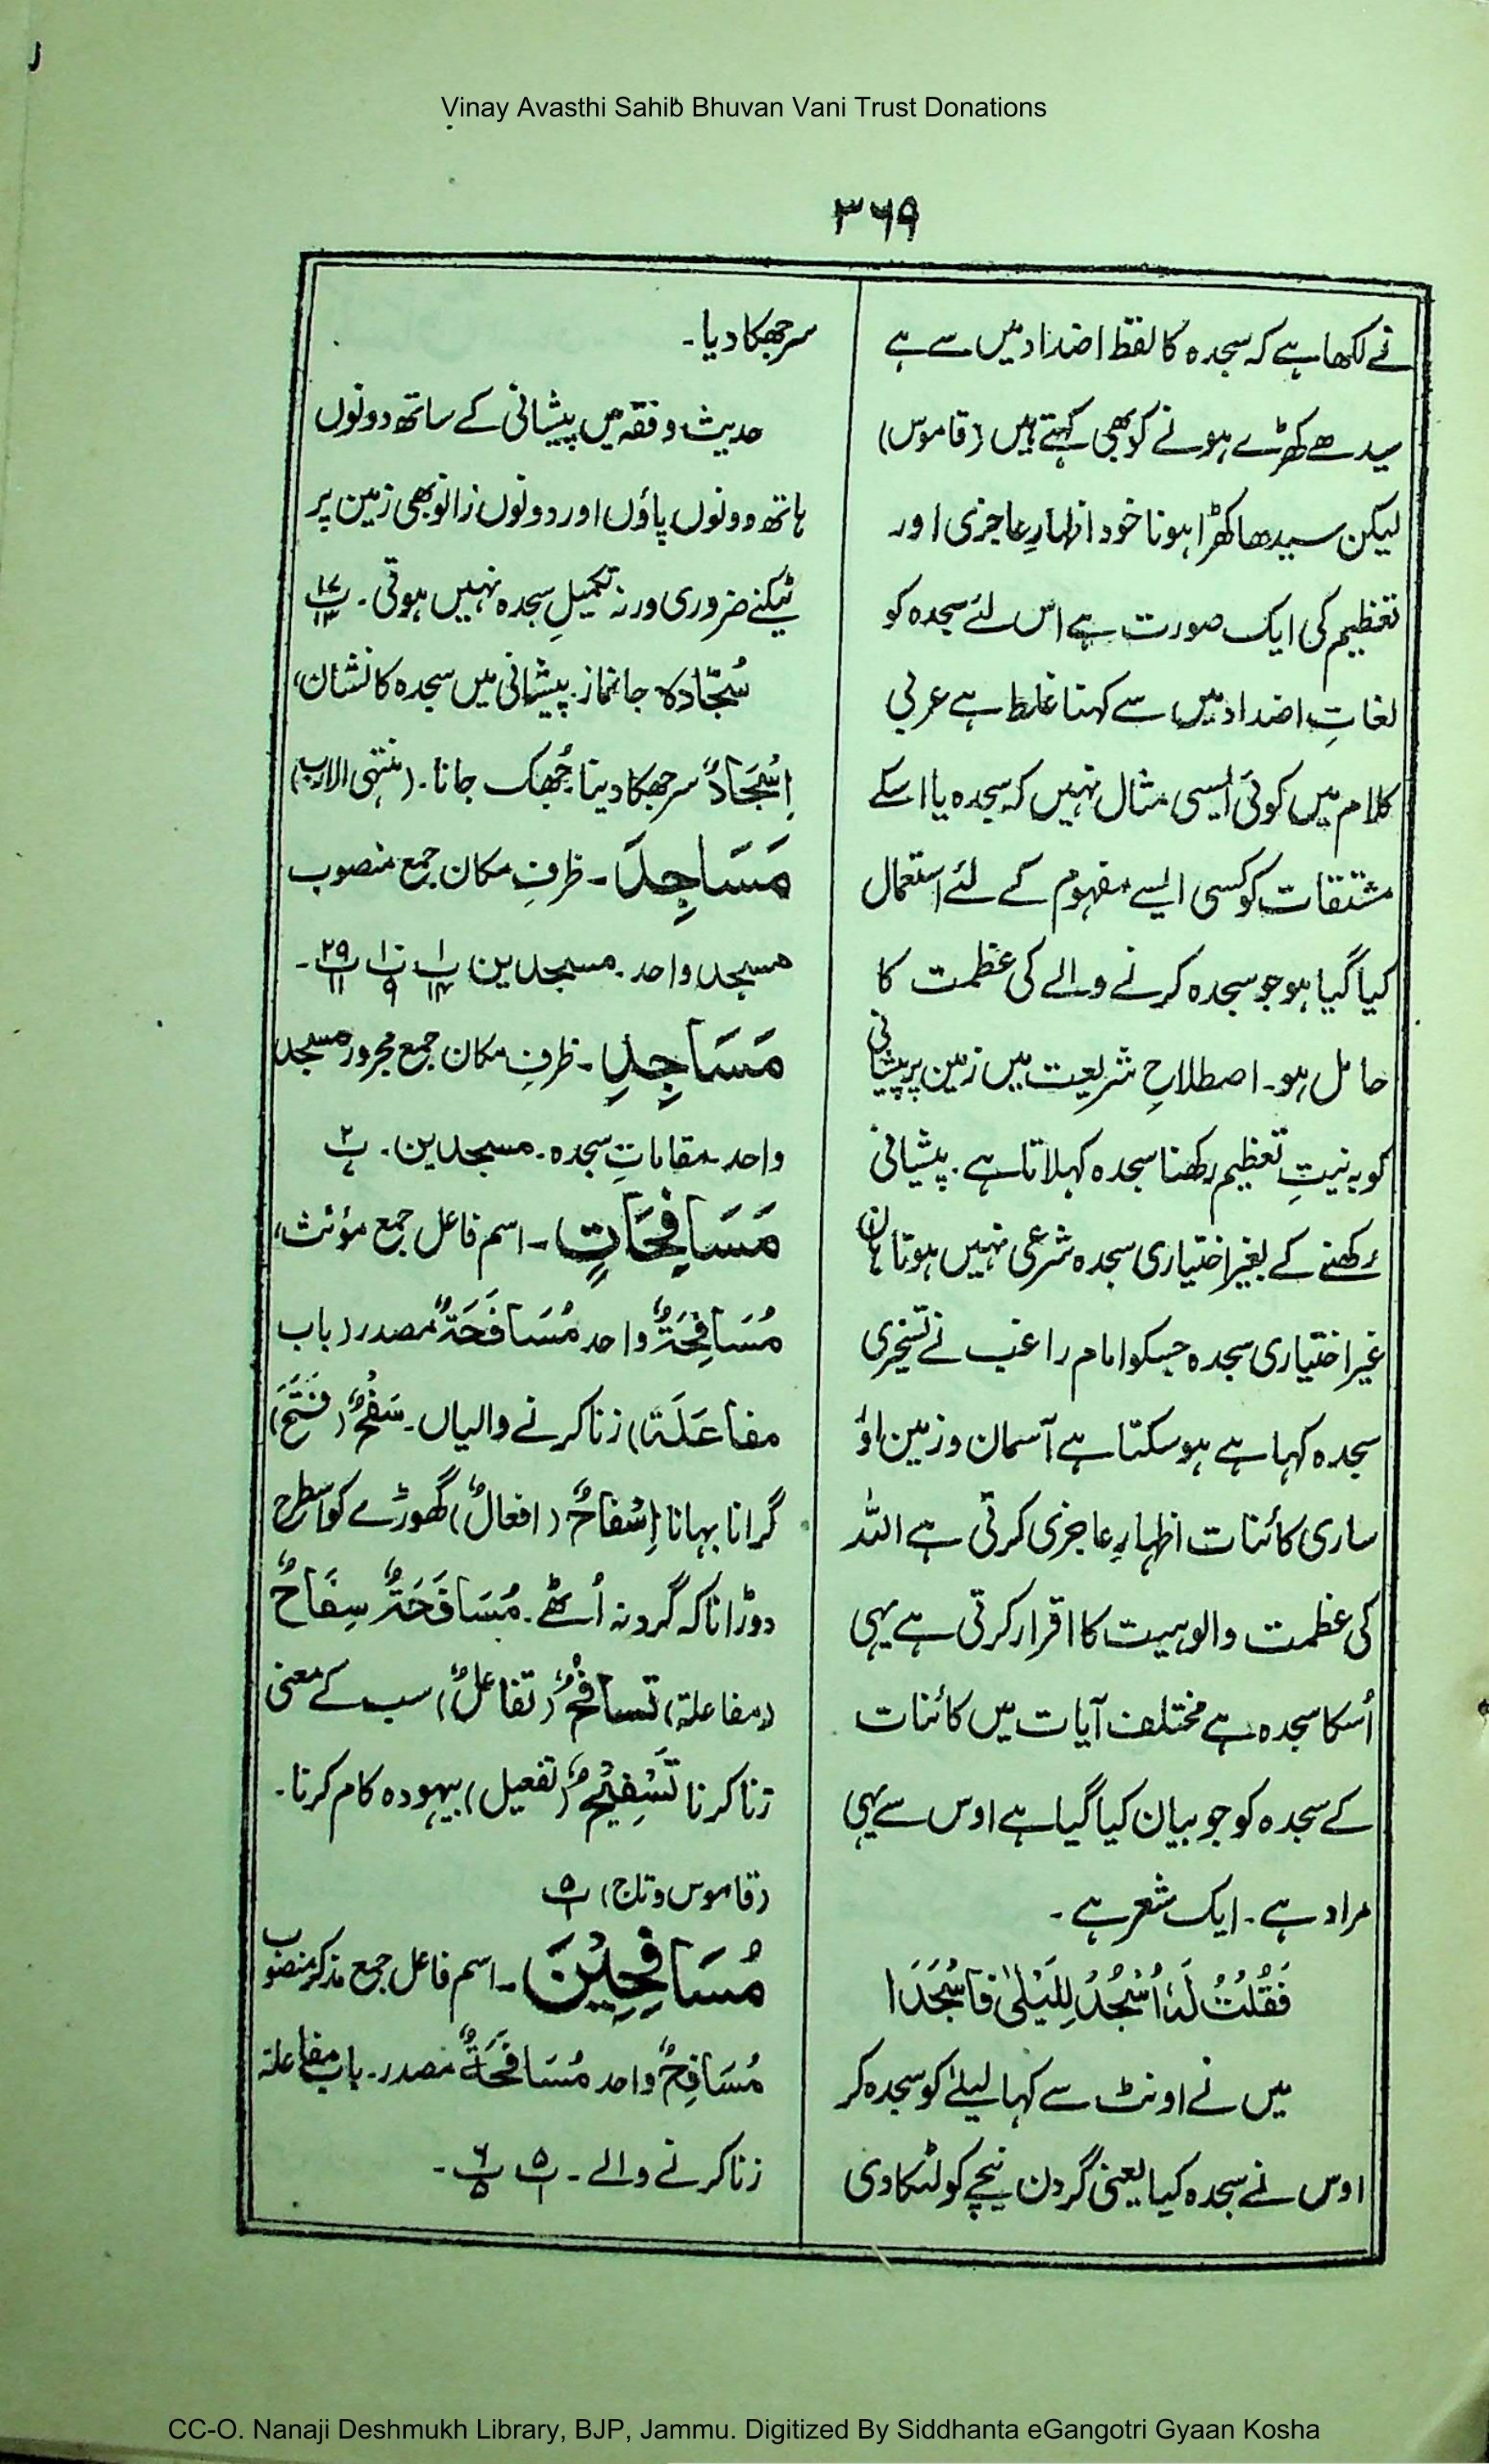 Vinay Avasthi Sahib Bhuvan Vani Trust Donations
۳۶۹
نے لکھا ہے کہ سجدہ کا لفظ اضداد میں سے ہے
سیدھے کھڑے ہونے کو بھی کہتے ہیں (قاموس)
لیکن سیدھا کھڑا ہونا خود اظہارِ عاجزی اور
تعظیم کی ایک صورت ہے اس لئے سجدہ کو
لغاتِ اضداد میں سے کہنا غلط ہے عربی
کلام میں کوئی ایسی مثال نہیں کہ سجدہ یا اسکے
مشتقات کو کسی ایسے مفہوم کے لئے استعمال
کیا گیا ہو جو سجدہ کرنے والے کی عظمت کا
حامل ہو۔ اصطلاحِ شریعت میں زمین پر پیشانی
کو بہ نیتِ تعظیم رکھنا سجدہ کہلاتا ہے۔ پیشانی
رکھنے کے بغیر اختیاری سجدہ شرعی نہیں ہوتا ہاں
غیر اختیاری سجدہ جسکو امام راغب نے تسخیری
سجدہ کہا ہے ہو سکتا ہے آسمان و زمین اور
ساری کائنات اظہارِ عاجزی کرتی ہے اللہ
کی عظمت والوہیت کا اقرار کرتی ہے یہی
اُسکا سجدہ ہے مختلف آیات میں کائنات
کے سجدہ کو جو بیان کیا گیا ہے اوس سے یہی
مراد ہے۔ ایک شعر ہے۔
فَقُلْتُ لَهٗ اُسْجُدْ لِلَيْلٰى فَاَسْجَدَا
میں نے اونٹ سے کہا لیلےٰ کو سجدہ کر
اوس نے سجدہ کیا یعنی گردن نیچے کو لٹکا دی
سر جھکا دیا۔
حدیث و فقہ میں پیشانی کے ساتھ دونوں
ہاتھ دونوں پاؤں اور دونوں زانو بھی زمین پر
ٹیکنے ضروری ورنہ تکمیلِ سجدہ نہیں ہوتی۔
سُجّادہ جانماز۔ پیشانی میں سجدہ کا نشان،
اِسْجَادٌ سر جھکا دینا جُھک جانا۔ (منتہی الارب)
مَسَاجِدَ۔ ظرفِ مکان جمع منصوب
مسجد واحد۔ مسجدین پ۱/۱۴ پ۱۰/۹ پ۲۹/۱۱۔
مَسَاجِدِ۔ ظرفِ مکان جمع مجرور مسجد
واحد مقاماتِ سجدہ۔ مسجدین۔
مَسَافِحَاتٍ۔ اسم فاعل جمع مؤنث،
مُسَافِحَةٌ واحد مُسَافَحَةٌ مصدر (باب
مفاعَلَۃ) زنا کرنے والیاں۔ سَفْحٌ (فَتَحَ)
گرانا بہانا اِسْفَاحٌ (افعالٌ) گھوڑے کو اسطرح
دوڑانا کہ گرد نہ اُٹھے۔ مُسَافَحَةٌ سِفَاحٌ
(مفاعلۃ) تَسَافُحٌ (تفاعلٌ) سب کے معنی
زنا کرنا تَسْفِیْحٌ (تفعیل) بیہودہ کام کرنا۔
(قاموس و تاج) پ۵/۱
مُسَافِحِیْنَ۔ اسم فاعل جمع مذکر منصوب
مُسَافِحٌ واحد مُسَافَحَةٌ مصدر۔ باب مفاعلۃ
زنا کرنے والے۔ پ۵/۱ پ۶/۵۔
CC-O. Nanaji Deshmukh Library, BJP, Jammu. Digitized By Siddhanta eGangotri Gyaan Kosha